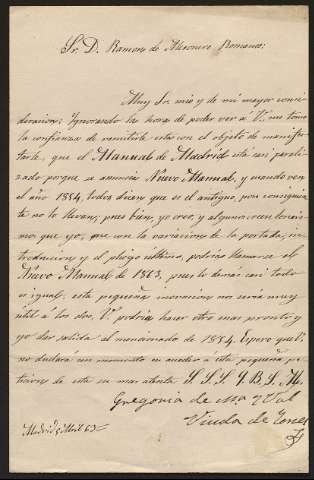 Sr. D. Ramon de Mesonero Romanos:
Muy Sr. mio y de mi mayor consi-
deracion: Ignorando las horas de poder ver á V. me tomo
la confianza de remitirle esta con el objeto de manifes-
tarle, que el Manual de Madrid está casi parali-
zado porque se anuncia Nuevo Manual, y cuando ven
el año 1854, todos dicen que es el antiguo, por consiguien-
te no lo llevan, pues bien, yo creo, y algunos creen lo mis-
mo que yo, que con la variacion de la portada, in-
troduccion y el pliego último, podria llamarse el
Nuevo Manual de 1863, pues lo demás casi todo
es igual; esta pequeña inovacion no seria muy
util á los dos, V. podria hacer otro mas pronto y
yo dar salida al manamado de 1854. Espero que V.
no dudará un momento en acceder á esta pequeña pe-
ticion de esta su mas atenta S. S. S. Q. B. S. M.
Gregoria de y Val
Viuda de
Madrid 9 Abril 63